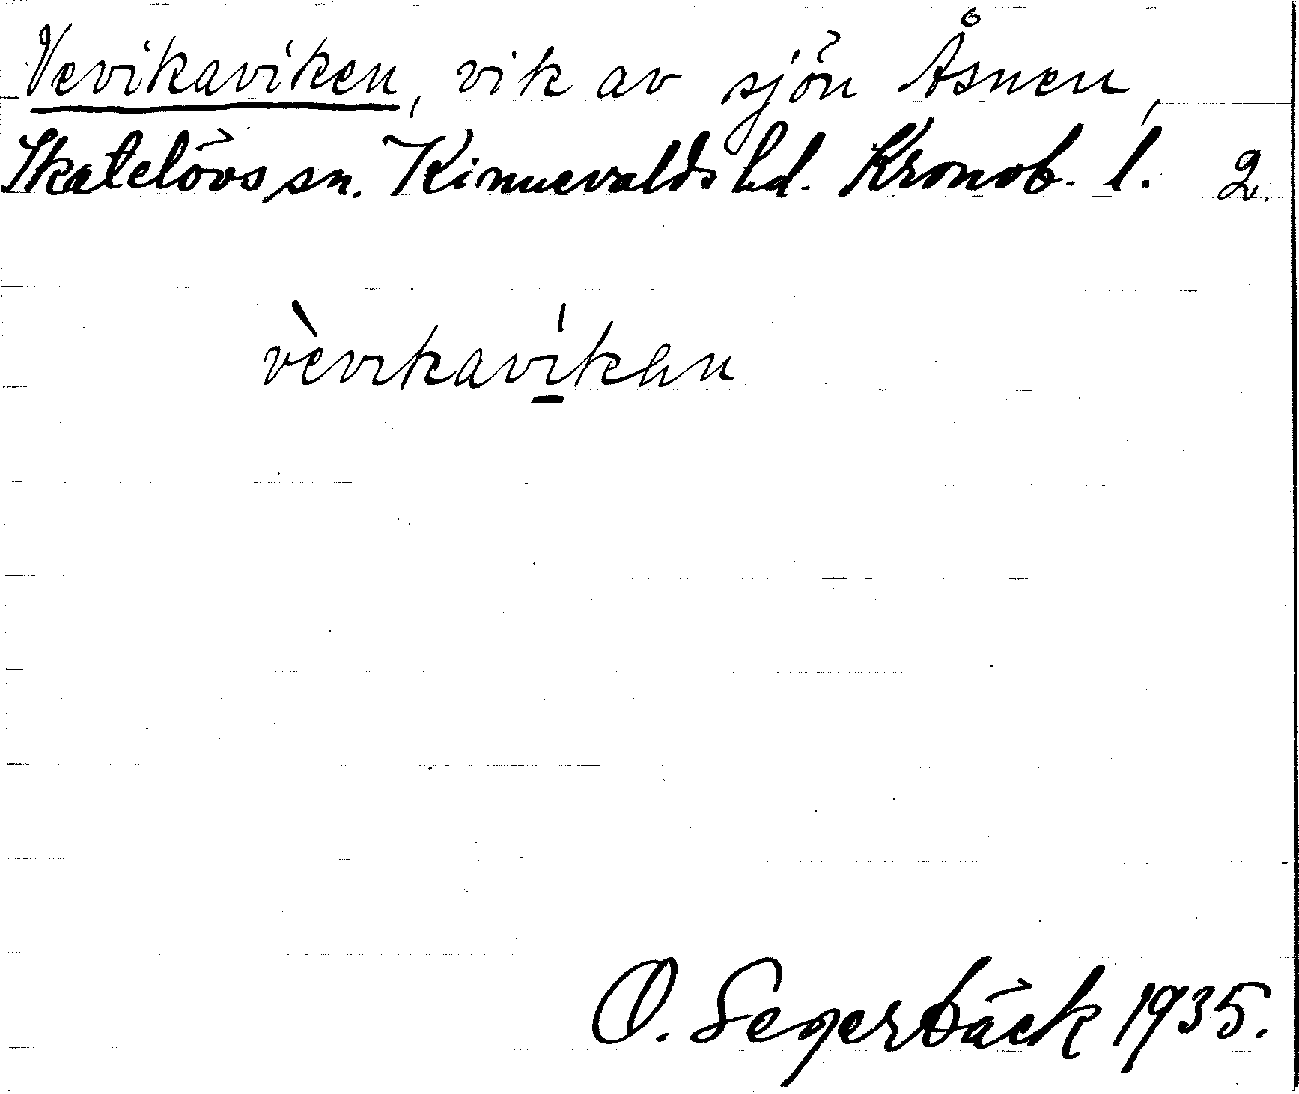 Vevikaviken, vik av sjön Åsnen,
Skatelövs sn. Kinnevalds hd. Kronob. l. 2.
vèvikavíkən
O. Segerbäck 1935.